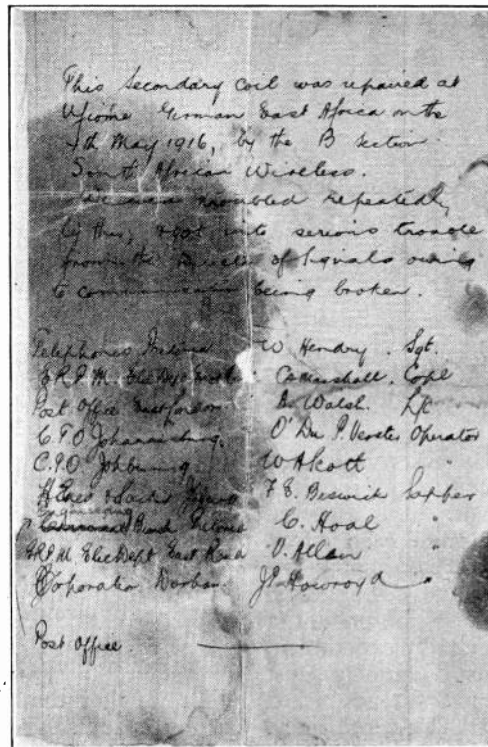 This Secondary coil was repaired at
Ufiome German East Africa on the
4th May 1916, by the B Section
South African Wireless.
We were troubled repeatedly
by this, & got into serious trouble
from the of Signals owing
to communication being broken.
Telephones W Hendry. Sgt.
E.R.P.M. Elec Dept East Marshall. Copl
Post Office East London. Walsh. L/C
G.P.O Johannesburg. O' Du P. Verster Operator
G.P.O Joh'burg W A Scott "
F. E. Beswick Sapper
Engineering
C. Hoal "
E.R.P.M Elec Dept East Rand V. Allan "
Corporation Durban. J. Howroyd "
Post Office.